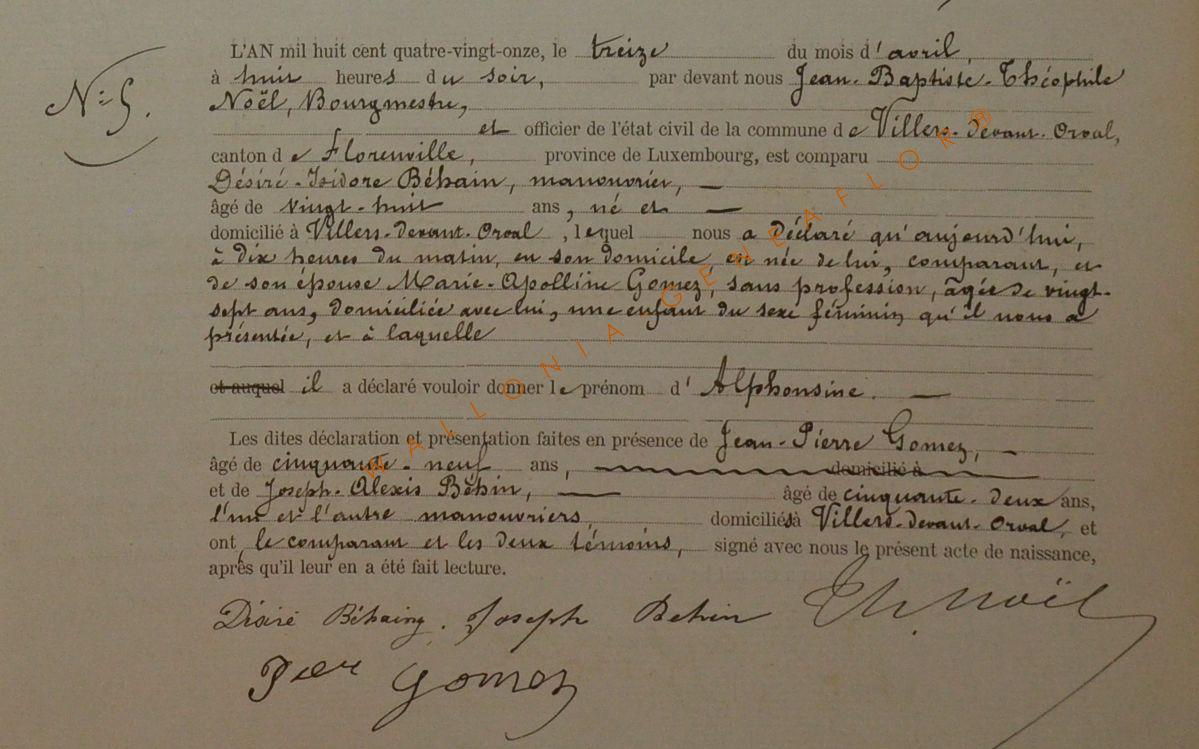 N° 5.
L'AN mil huit cent quatre-vingt-onze, le treize du mois d'avril,
à huit heures du soir, par devant nous Jean-Baptiste-Théophile
Noël, Bourgmestre,
et officier de l'état civil de la commune de Villers-devant-Orval,
canton de Florenville, province de Luxembourg, est comparu
Désiré-Isidore Béhain, manouvrier, —
âgé de vingt-huit ans, né et —
domicilié à Villers-devant-Orval, lequel nous a déclaré qu'aujourd'hui,
à dix heures du matin, en son domicile, est née de lui, comparant, et
de son épouse Marie-Apolline Gomez, sans profession, âgée de vingt-
sept ans, domiciliée avec lui, une enfant du sexe féminin qu'il nous a
présentée, et à laquelle
et auquel il a déclaré vouloir donner le prénom d'Alphonsine. —
Les dites déclaration et présentation faites en présence de Jean-Pierre Gomez, —
âgé de cinquante-neuf ans, domicilié à
et de Joseph-Alexis Béhin, — âgé de cinquante-deux ans,
l'un et l'autre manouvriers, domiciliés à Villers-devant-Orval, et
ont, le comparant et les deux témoins, signé avec nous le présent acte de naissance,
après qu'il leur en a été fait lecture.
Désiré Béhaing. Joseph Behin Th. Noël
Pier gomez
WALLONIA GENEAFLOR®